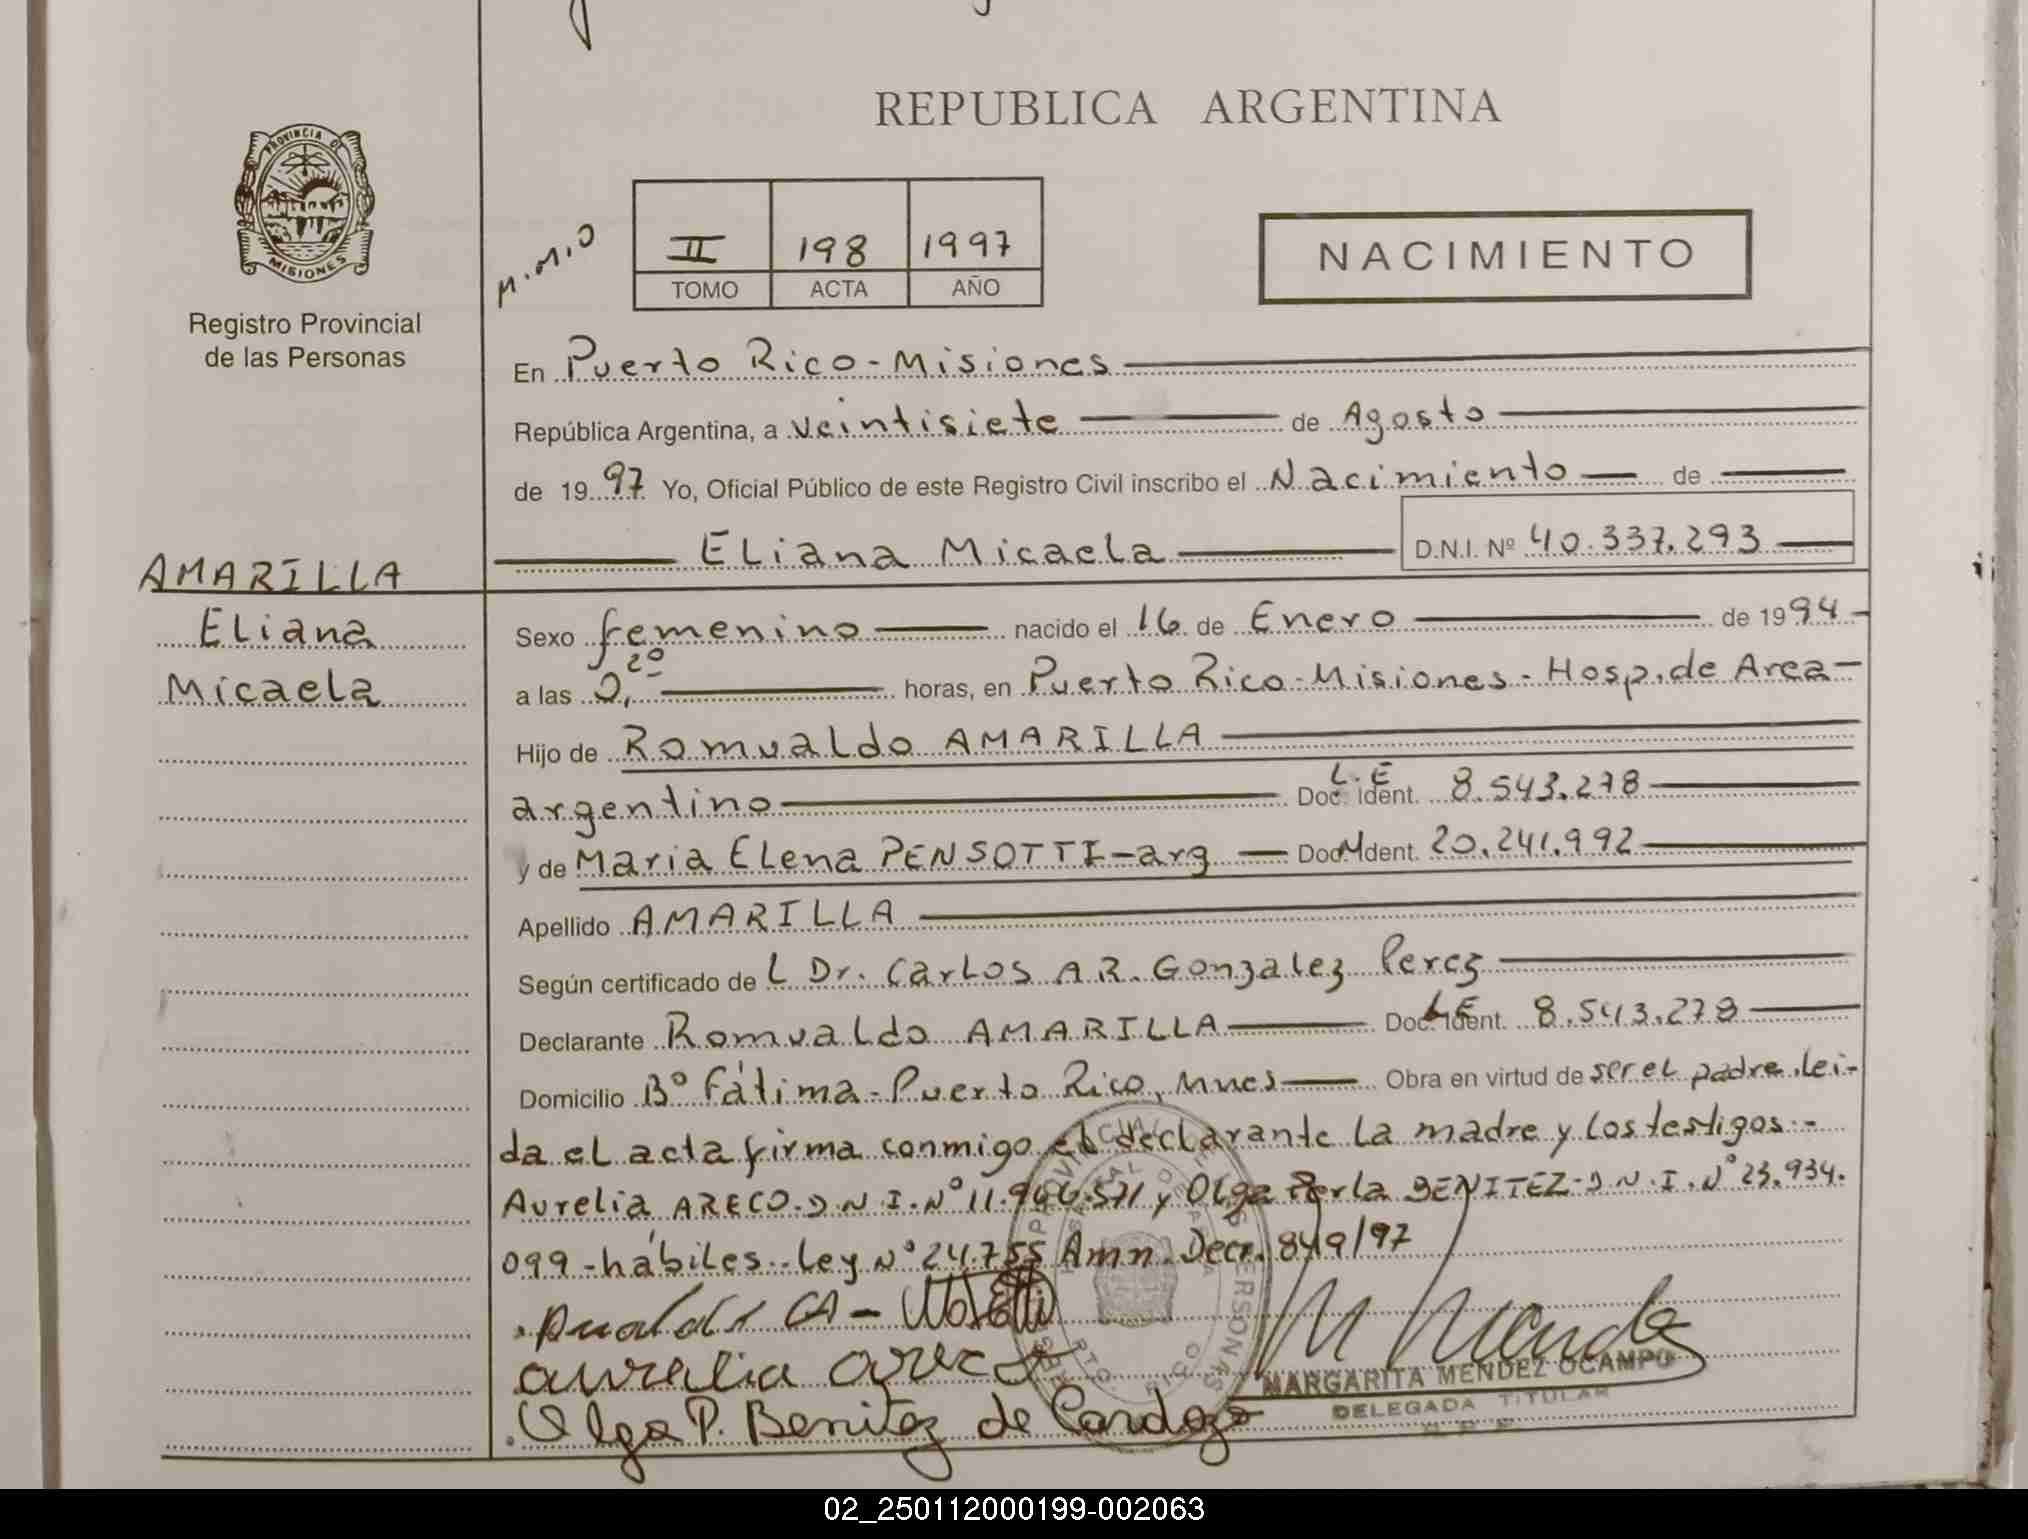 REPUBLICA ARGENTINA
PROVINCIA DE
MISIONES
Registro Provincial
de las Personas
M.M.O
II 198 1997
TOMO ACTA AÑO
NACIMIENTO
En Puerto Rico - Misiones
República Argentina, a veintisiete de Agosto
de 19 97 Yo, Oficial Público de este Registro Civil inscribo el Nacimiento de
Eliana Micaela D.N.I. Nº 40.337.293
AMARILLA
Eliana
Micaela
Sexo femenino nacido el 16 de Enero de 19 94 -
a las 2,20 horas, en Puerto Rico - Misiones - Hosp. de Area -
Hijo de Romualdo AMARILLA
argentino Doc. Ident. L.E 8.543.278
y de Maria Elena PENSOTTI - arg Doc. Ident. 20.241.992
Apellido AMARILLA
Según certificado de L Dr. Carlos A R. Gonzalez Perez
Declarante Romualdo AMARILLA Doc. Ident. L.E 8.543.278
Domicilio Bº Fátima - Puerto Rico, Mnes Obra en virtud de ser el padre. lei-
da el acta firma conmigo el declarante la madre y los testigos.-
Aurelia ARECO. D.N.I. Nº 11.946.571 y Olga Perla BENITEZ - D.N.I. Nº 23.934.
099 - hábiles.. Ley Nº 24.755 Amn. Decr. 849/97
aurelia areco
M Mendez
MARGARITA MENDEZ OCAMPO
DELEGADA TITULAR
Olga P. Benitez de Cardozo
02_250112000199-002063